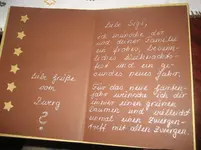 Liebe Grüße
vom
Zwerg
?
Liebe Sigi,
ich wünsche dir
und deiner Familie
ein frohes, besinn-
liches Weihnachts-
fest und ein ge-
sundes neues Jahr.
Für das neue Garten-
jahr wünsche ich dir
immer einen grünen
Daumen und vielleicht
einmal einen Zwergen-
treff mit allen Zwergen.